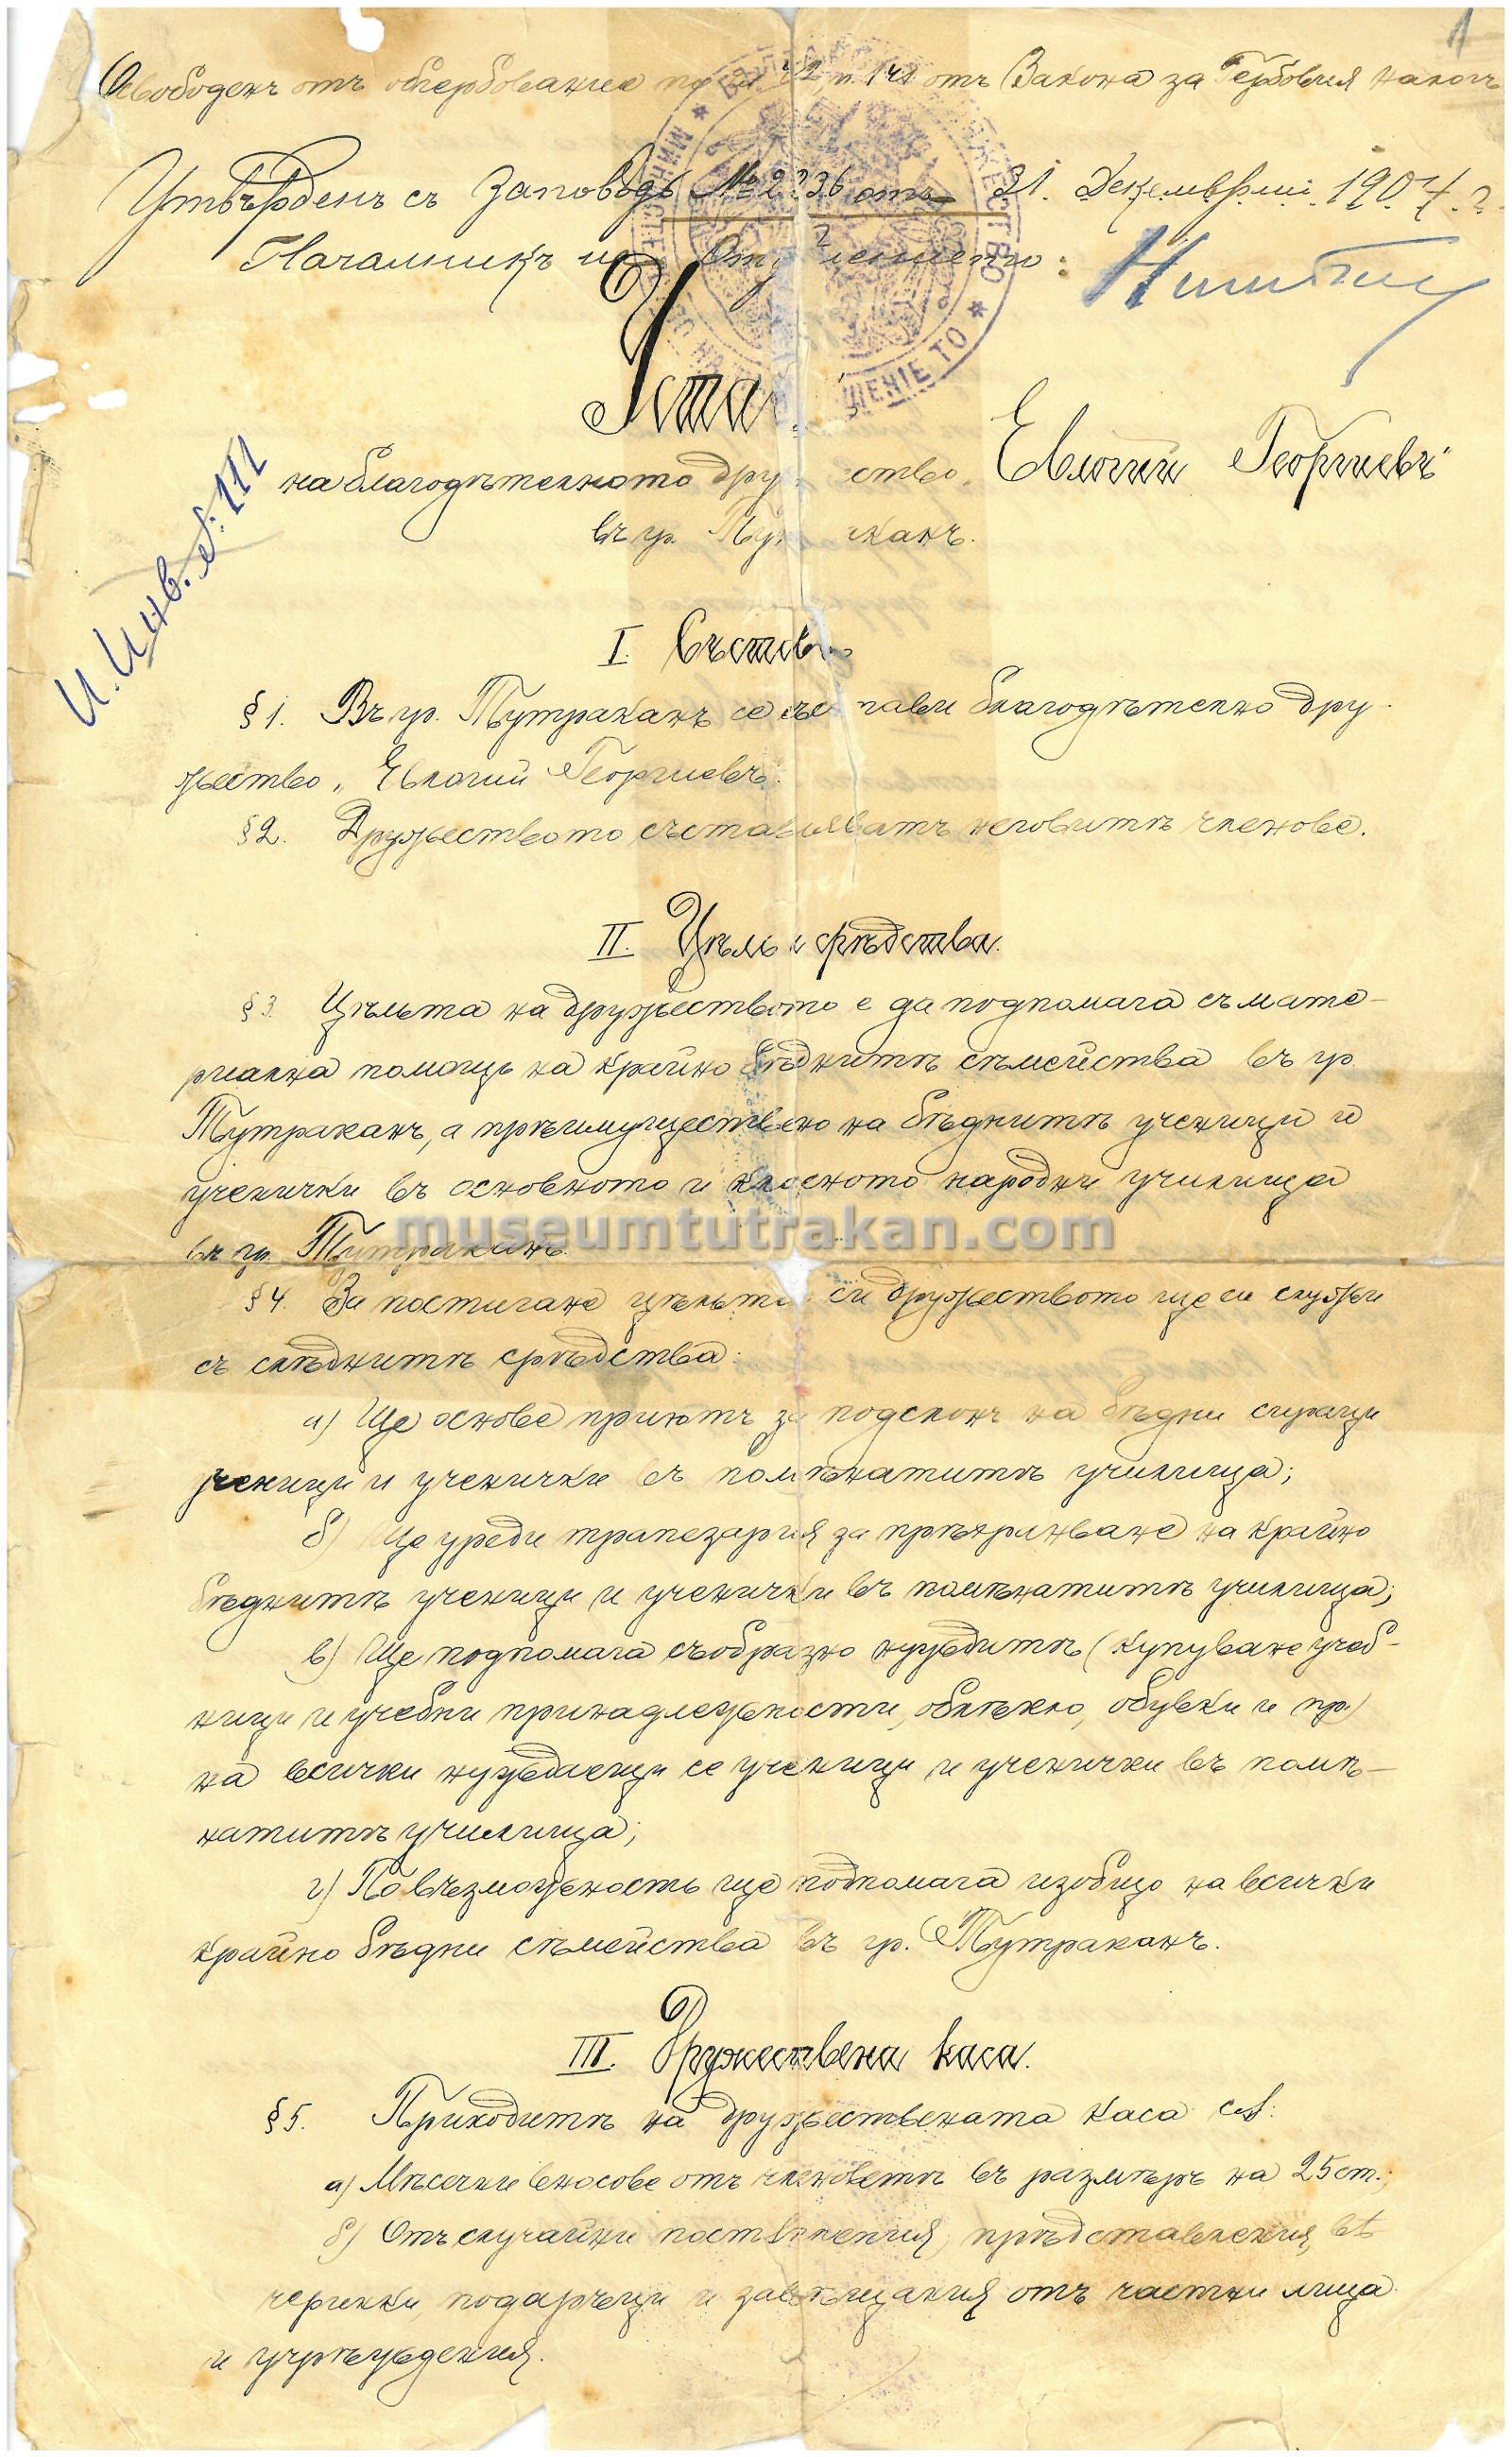 1
Освободенъ отъ обгербование по чл. 42, п. 14 отъ Закона за Гербовия налогъ
Утвърденъ съ заповѣдь № 2236 отъ 31. Декемврий 1904 г.
Началникъ на От
Уста
на благодѣтелното дру ство „Евлогий Георгиевъ“
въ гр. Ту канъ.
И. Инв. №: 111
I. Съставъ
§ 1. Въ гр. Тутраканъ се със тави благодѣтелно дру-
жество „Евлогий Георгиевъ“.
§ 2. Дружеството съставляватъ неговитѣ членове.
II. Цѣль и срѣдства.
§ 3. Цѣльта на дружеството е да подпомага съ мате-
риална помощь на крайно бѣднитѣ сѣмейства въ гр.
Тутраканъ, а прѣимуществено на бѣднитѣ ученици и
ученички въ основното и класното народни училища
въ гр. Тутраканъ.
museumtutrakan.com
§ 4. За постигане цѣльта си дружеството ще си служи
съ слѣднитѣ срѣдства:
а) Ще основе приютъ за подслонъ на бѣдни сираци
ученици и ученички въ помѣнатитѣ училища;
б) Ще уреди трапезария за прѣхранване на крайно
бѣднитѣ ученици и ученички въ помѣнатитѣ училища;
в) Ще подпомага съобразно нуждитѣ (купуване учеб-
ници и учебни принадлежности, облѣкло, обувки и пр.)
на всички нуждаещи се ученици и ученички въ помѣ-
натитѣ училища;
г) По възможность ще подпомага изобщо на всички
крайно бѣдни сѣмейства въ гр. Тутраканъ.
III. Дружествена каса.
§ 5. Приходитѣ на дружествената каса сѫ:
а) Мѣсечни вносове отъ членоветѣ въ размѣръ на 25 ст.;
б) Отъ случайни постѫпления, прѣдставления, ве
черинки, подаръци и завѣщания отъ частни лица
и учрѣждения.